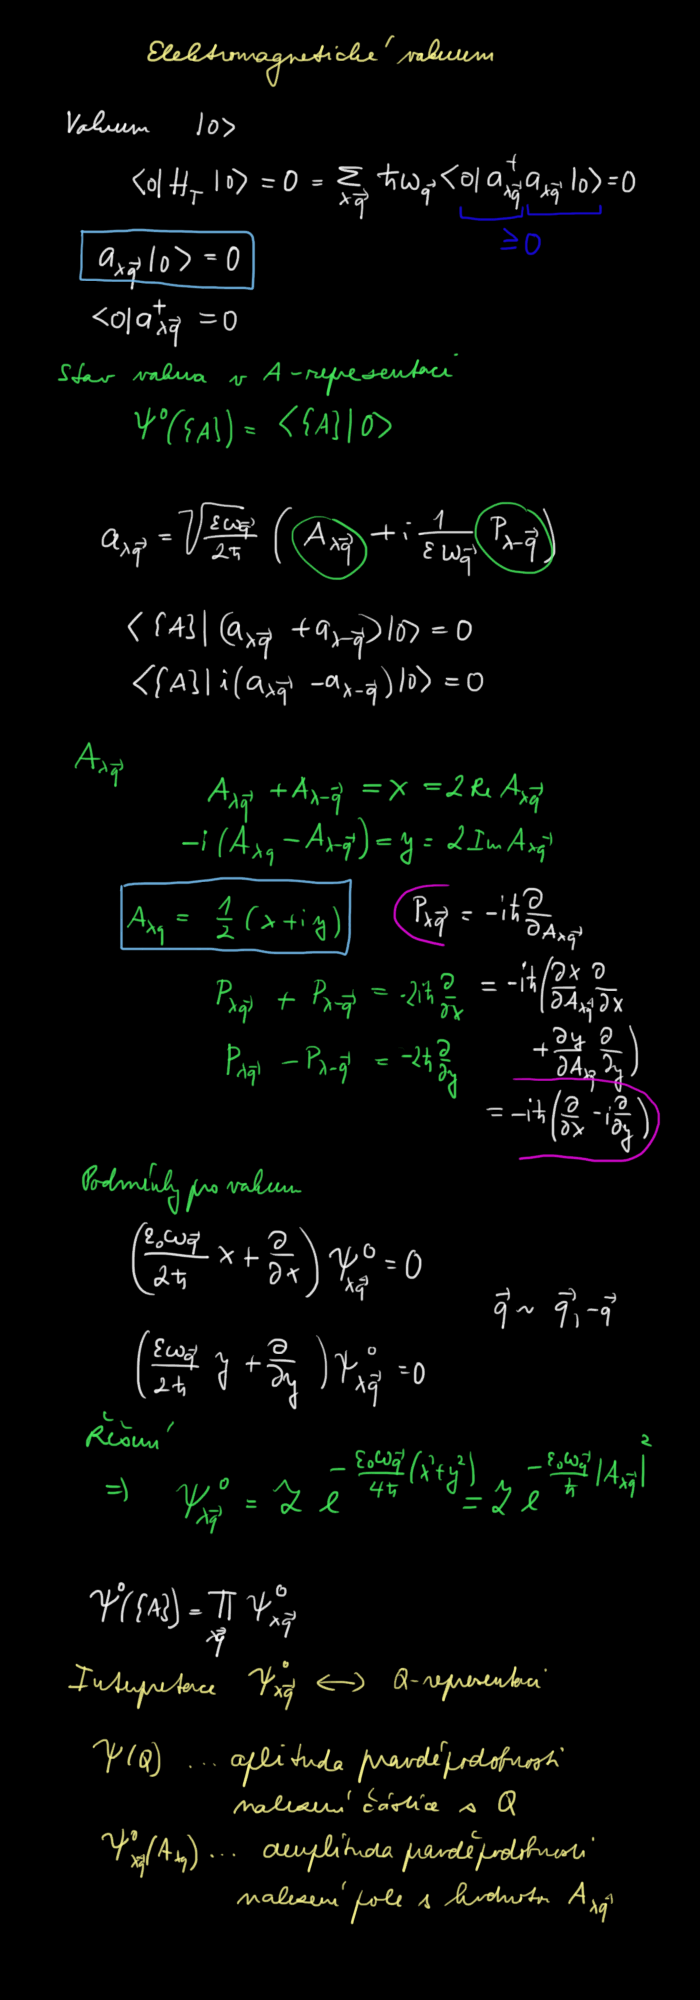 Elektromagnetické vakuum
Vakuum |0>
<0|H_T|0> = 0 = Σ_λq⃗ ħω_q⃗ <0|a⁺_λq⃗ a_λq⃗|0> = 0
≥0
a_λq⃗|0> = 0
<0|a⁺_λq⃗ = 0
Stav vakua v A-representaci
Ψ⁰({A}) = <{A}|0>
a_λq⃗ = √(εω_q⃗/2ħ) (A_λq⃗ + i 1/(εω_q⃗) P_λ-q⃗)
<{A}|(a_λq⃗ + a_λ-q⃗)|0> = 0
<{A}|i(a_λq⃗ - a_λ-q⃗)|0> = 0
A_λq⃗
A_λq⃗ + A_λ-q⃗ = x = 2 Re A_λq⃗
-i(A_λq - A_λ-q⃗) = y = 2 Im A_λq⃗
A_λq = 1/2 (x + iy)
P_λq⃗ = -iħ ∂/∂A_λq⃗
P_λq⃗ + P_λ-q⃗ = -2iħ ∂/∂x
= -iħ(∂x/∂A_λq⃗ ∂/∂x
P_λq⃗ - P_λ-q⃗ = -2ħ ∂/∂y
+ ∂y/∂A_λq ∂/∂y)
= -iħ(∂/∂x - i ∂/∂y)
Podmínky pro vakuum
(ε₀ω_q⃗/2ħ x + ∂/∂x) Ψ⁰_λq⃗ = 0
q⃗ ~ q⃗, -q⃗
(εω_q⃗/2ħ y + ∂/∂y) Ψ⁰_λq⃗ = 0
Řešení
⇒ Ψ⁰_λq⃗ = Z e^(-ε₀ω_q⃗/4ħ (x²+y²)) = Z e^(-ε₀ω_q⃗/ħ |A_λq⃗|²)
Ψ⁰({A}) = Π_λq⃗ Ψ⁰_λq⃗
Interpretace Ψ⁰_λq⃗ ⟷ Q-representaci
Ψ(Q) ... aplituda pravděpodobnosti
nalezení částice s Q
Ψ⁰_λq⃗(A_λq) ... amplituda pravděpodobnosti
nalezení pole s hodnotou A_λq⃗